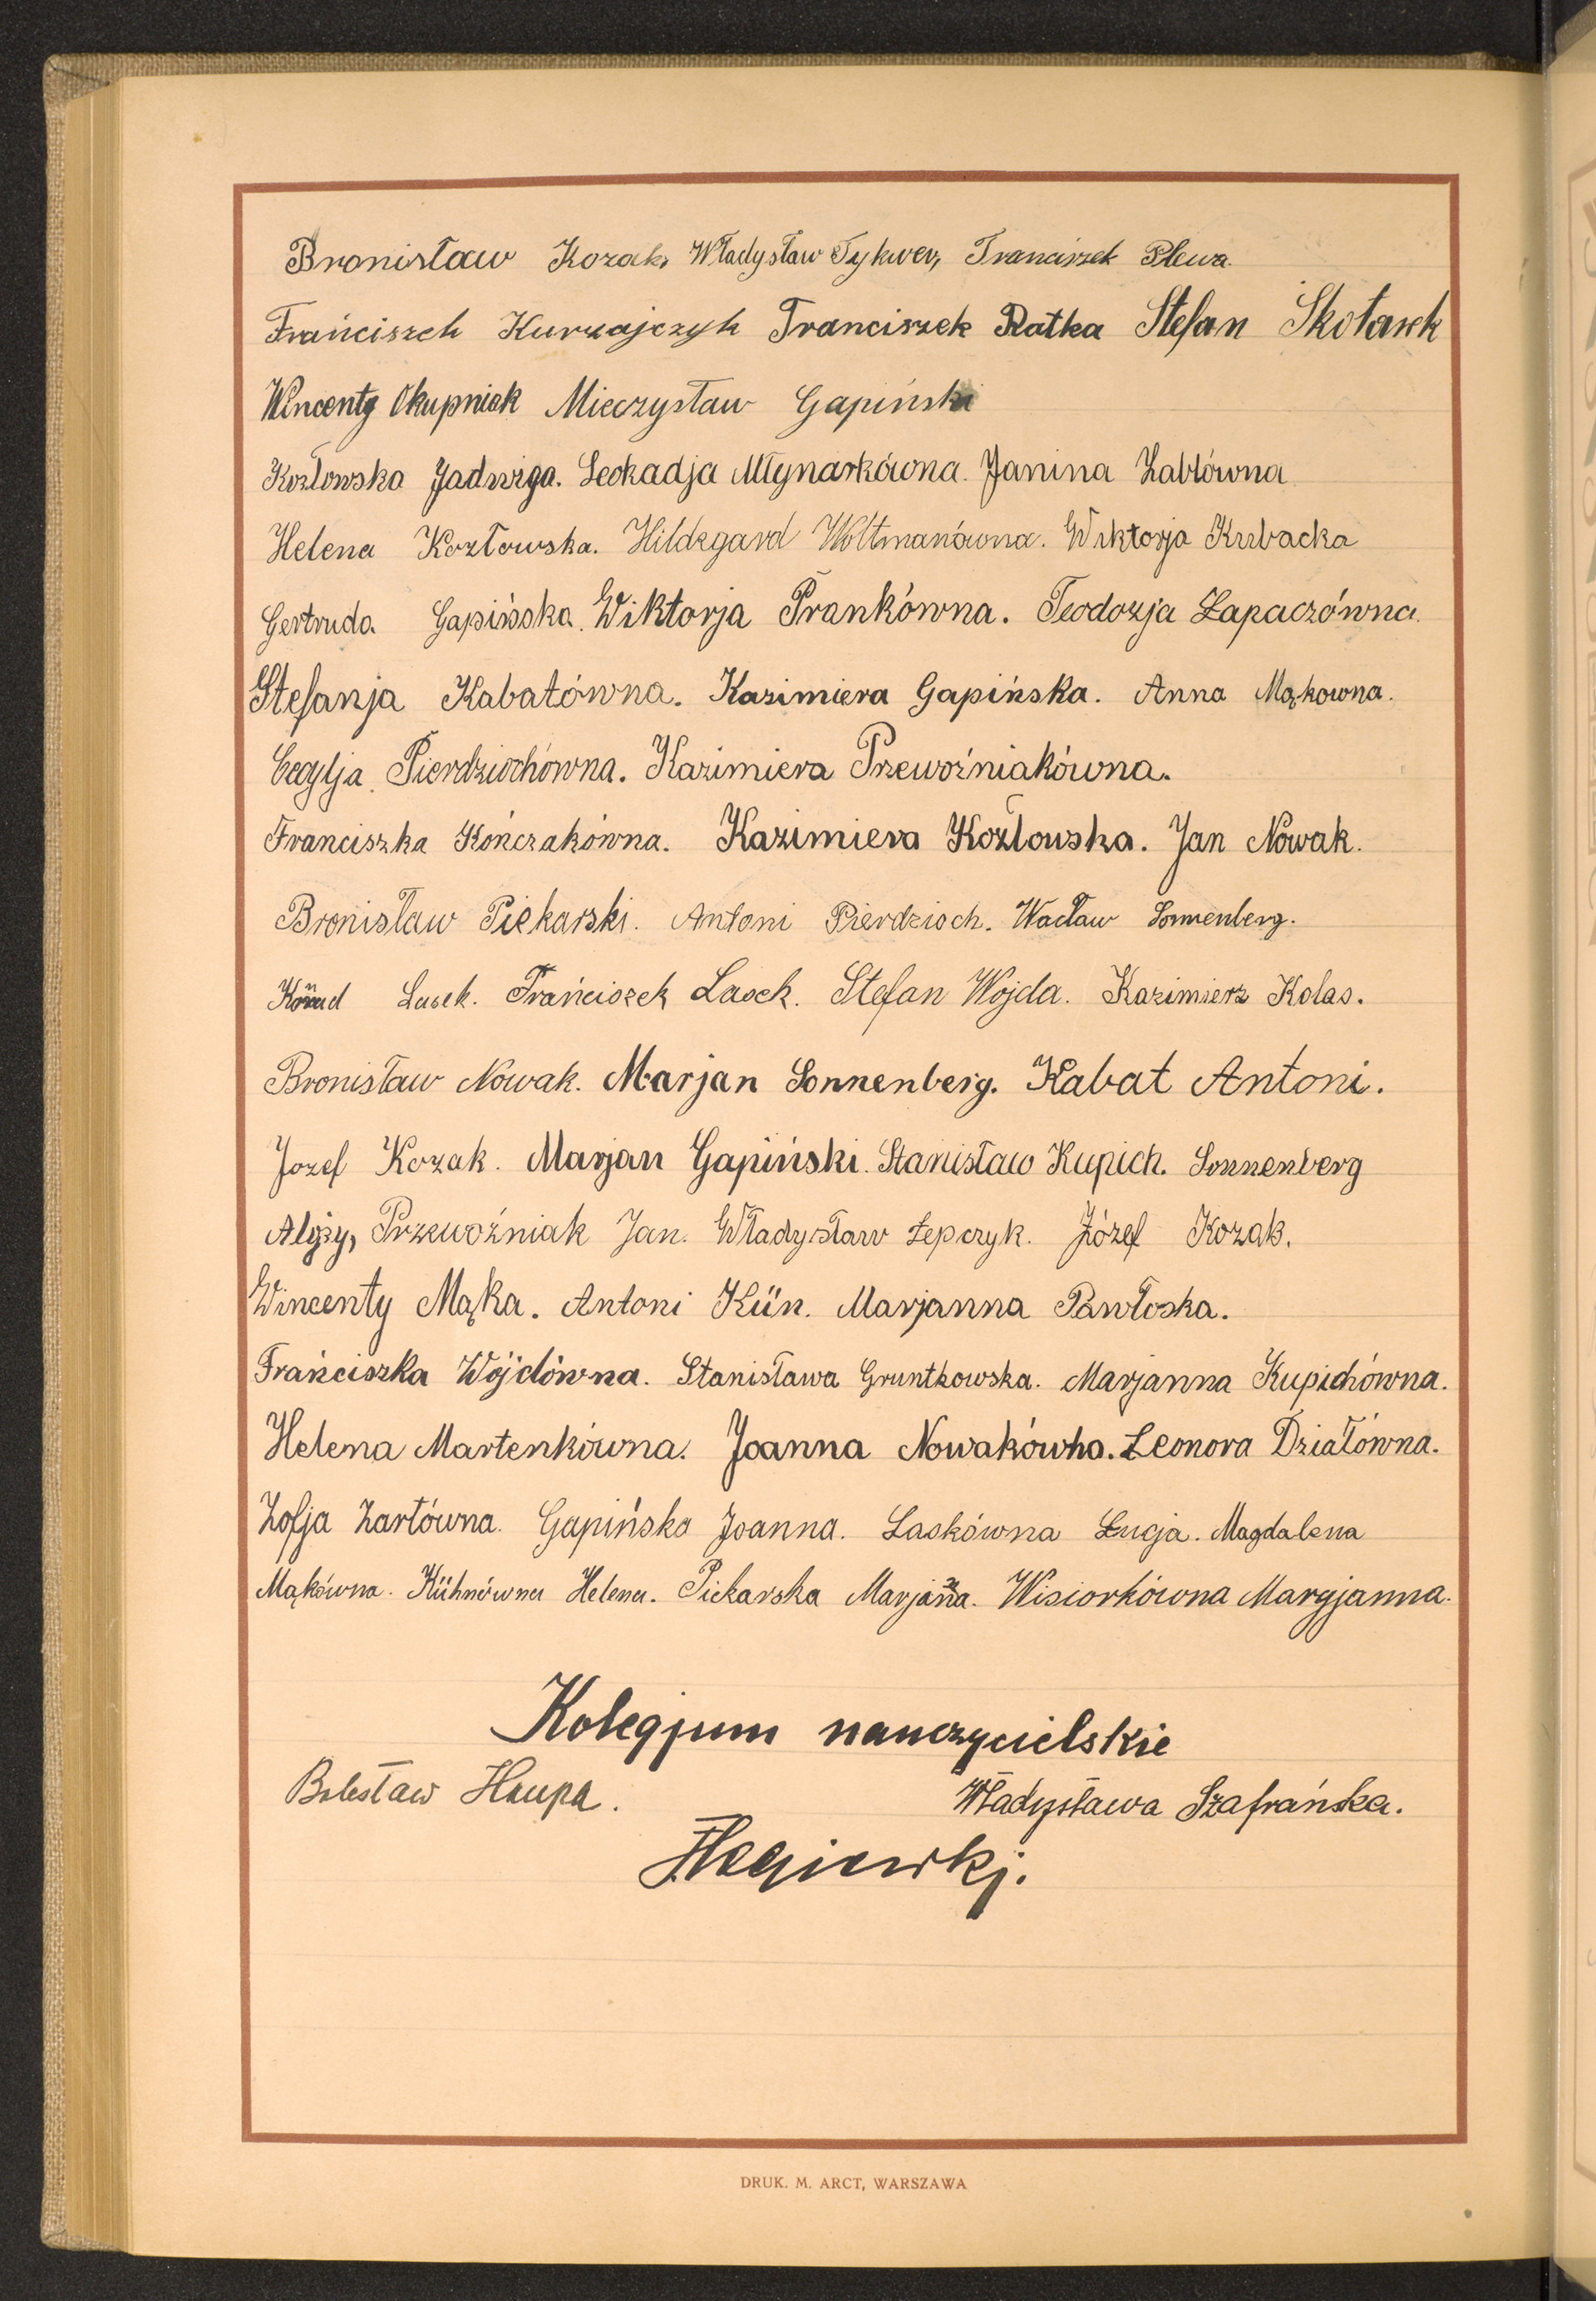 Bronisław Kozak, Władysław Tykwer, Franciszek Plewa.
Frańciszek Kurzajczyk Franciszek Ratka Stefan Skotarek
Wincenty Okupniek Mieczysław Gapiński
Kozłowska Jadwiga. Leokadja Młynarkówna. Janina Żabłówna
Helena Kozłowska. Hildegard Woltmanówna. Wiktorja Kubacka
Gertruda Gapińska. Wiktorja Frankówna. Teodozja Łapaczówna.
Stefanja Kabatówna. Kazimiera Gapińska. Anna Mąkowna.
Cecylja Pierdziochówna. Kazimiera Przewoźniakówna.
Franciszka Kończakówna. Kazimiera Kozłowska. Jan Nowak.
Bronisław Piekarski. Antoni Pierdzioch. Wacław Sonnenberg.
Konrad Lasek. Frańciszek Lasek. Stefan Wojda. Kazimierz Kolas.
Bronisław Nowak. Marjan Sonnenberg. Kabat Antoni.
Jozef Kozak. Marjan Gapiński. Stanisław Kupich. Sonnenberg
Alojzy, Przewoźniak Jan. Władysław Łepczyk. Józef Kozak.
Wincenty Mąka. Antoni Kün. Marjanna Pawłoska.
Frańciszka Wójdówna. Stanisława Gruntkowska. Marjanna Kupichówna.
Helena Martenkówna. Joanna Nowakówna. Leonora Działówna.
Zofja Żartówna. Gapińska Joanna. Laskówna Łucja. Magdalena
Mąkówna. Kühnówna Helena. Piekarska Marjanna. Wisiorkówna Margjanna.
Kolegjum nauczycielskie
Bolesław Haupa. Władysława Szafrańska.
DRUK. M. ARCT, WARSZAWA